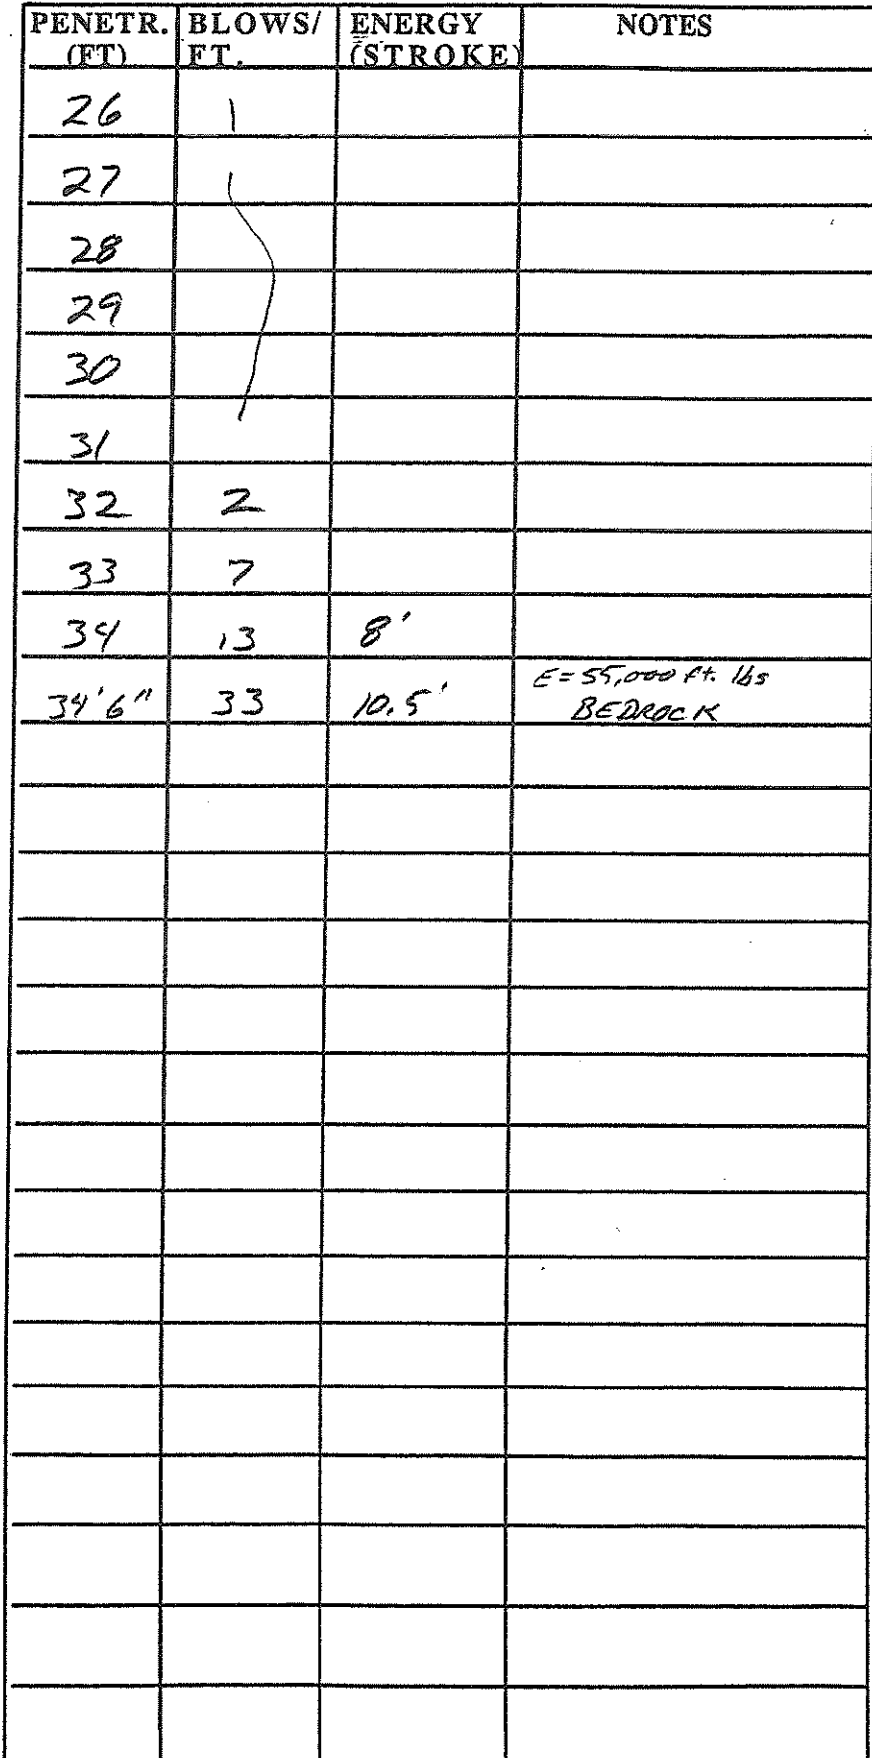 PENETR. (FT) BLOWS/ FT. ENERGY (STROKE) NOTES
26 1
27
28
29
30
31
32 2
33 7
34 13 8'
34'6" 33 10.5' E=55,000 ft. lbs
BEDROCK